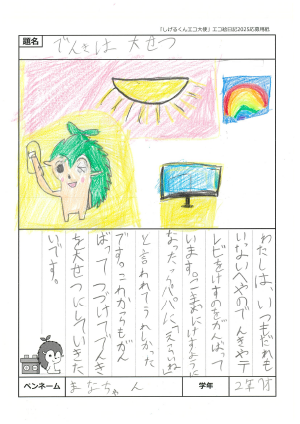 「しげるくんエコ大使」エコ絵日記2025応募用紙
題名
でんきは 大せつ
わたしは、いつもだれも
いないへやのでんきやテ
レビをけすのをがんばって
います。こまめにけすように
なったらパパに「えらいね」
と言われてうれしかった
です。これからもがん
ばってつづけてでんき
を大せつにしていきた
いです。
ペンネーム
まなちゃん
学年
2年